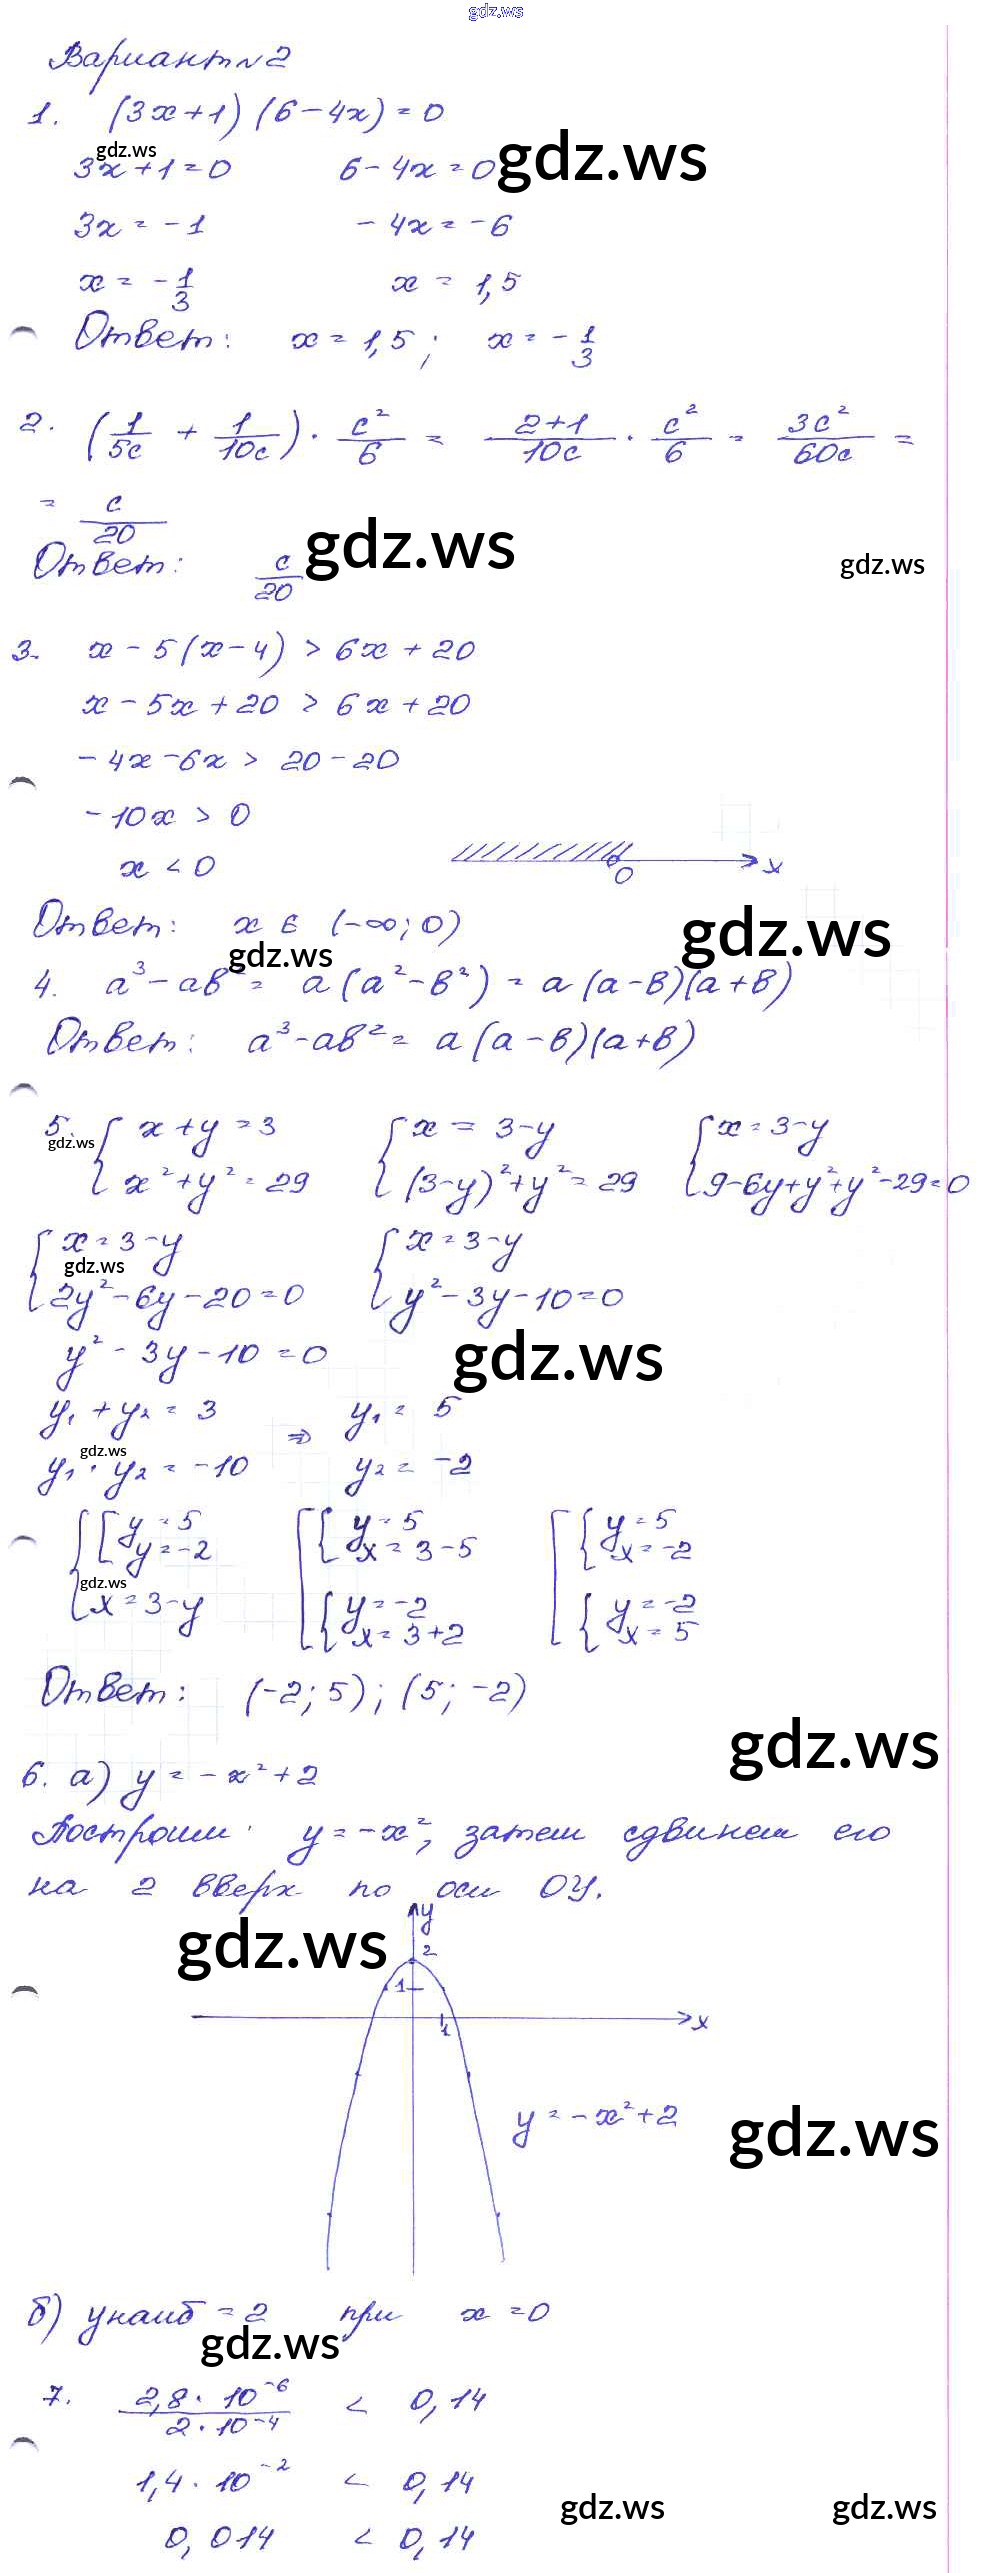 gdz.ws
Вариант №2
1. (3x+1)(6-4x)=0
gdz.ws
3x+1=0 6-4x=0 gdz.ws
3x=-1 -4x=-6
x=-1/3 x=1,5
Ответ: x=1,5; x=-1/3
2. (1/5c + 1/10c)·c²/6 = 2+1/10c · c²/6 = 3c²/60c =
= c/20
Ответ: c/20 gdz.ws gdz.ws
3. x-5(x-4)>6x+20
x-5x+20>6x+20
-4x-6x>20-20
-10x>0
x<0 0 x
Ответ: x∈(-∞;0) gdz.ws
gdz.ws
4. a³-ab²= a(a²-b²)=a(a-b)(a+b)
Ответ: a³-ab²= a(a-b)(a+b)
5. {x+y=3 {x=3-y {x=3-y
gdz.ws
x²+y²=29 (3-y)²+y²=29 9-6y+y²+y²-29=0
{x=3-y {x=3-y
gdz.ws
2y²-6y-20=0 y²-3y-10=0
y²-3y-10=0 gdz.ws
y₁+y₂=3 ⇒ y₁=5
gdz.ws
y₁·y₂=-10 y₂=-2
{[y=5 [{y=5 [{y=5
y=-2 x=3-5 x=-2
gdz.ws
x=3-y {y=-2 {y=-2
x=3+2 x=5
Ответ: (-2;5);(5;-2)
gdz.ws
6. а) y=-x²+2
Построим y=-x², затем сдвинем его
на 2 вверх по оси OY.
y
gdz.ws 2
1
1 x
y=-x²+2
gdz.ws
б) yнаиб=2 при x=0
gdz.ws
7. 2,8·10⁻⁶/2·10⁻⁴ < 0,14
1,4·10⁻² < 0,14
gdz.ws gdz.ws
0,014 < 0,14